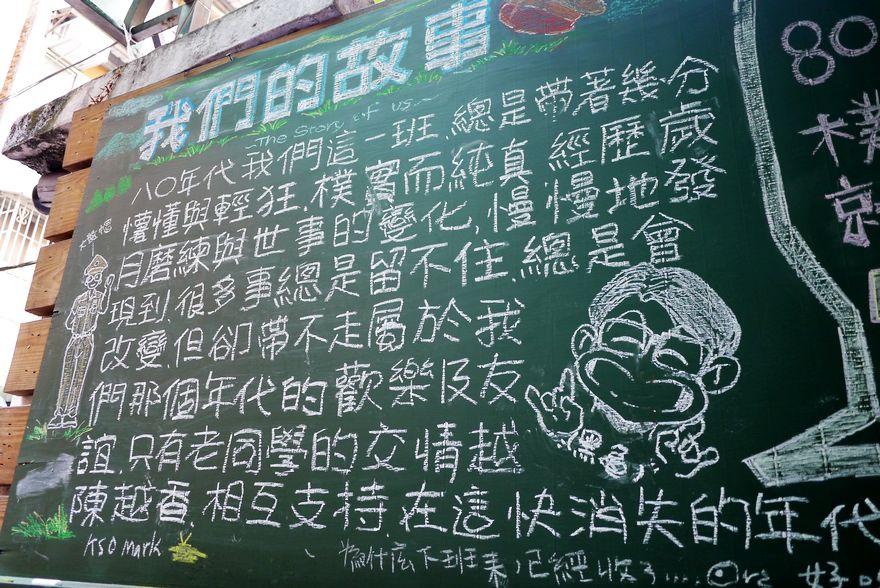 我們的故事
The Story of us
八〇年代我們這一班,總是帶著幾分
懵懂與輕狂,樸實而純真,經歷歲
月磨練與世事的變化,慢慢地發
現到,很多事總是留不住,總是會
改變,但卻帶不走屬於我
們那個年代的歡樂及友
誼,只有老同學的交情越
陳越香,相互支持,在這快消失的年代
Kso mark
為什麼不班表已經收了....
80